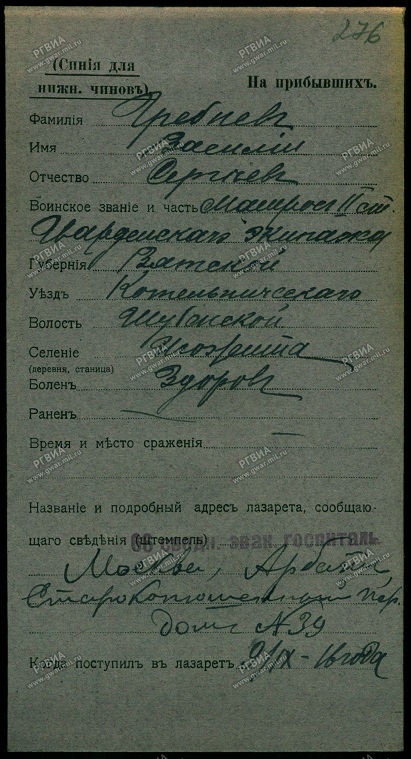 276
(Синія для
нижн. чиновъ).
На прибывшихъ.
Фамилія Гребневъ
Имя Василій
Отчество Сергѣев
Воинское званіе и часть Матрос II ст.
Гвардейскаго Экипажа
Губернія Вятской
Уѣздъ Котельническаго
Волость Шубенской
Селеніе
(деревня, станица)
Боленъ Здоров
Раненъ
Время и мѣсто сраженія
Названіе и подробный адресъ лазарета, сообщаю-
щаго свѣдѣнія (штемпель)
эвак. госпиталь
Москва, Арбатъ
Староконюшенный пер.
домъ № 39
Когда поступилъ въ лазаретъ /IX - 16 года
РГВИА
www.gwar.mil.ru